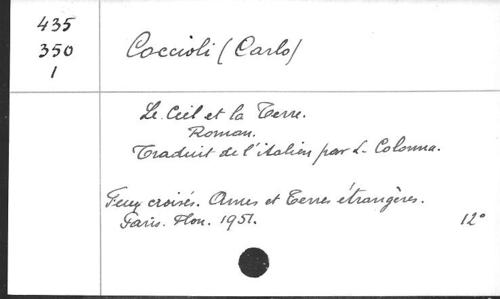 435
350
1
Coccioli (Carlo)
Le Ciel et la Terre.
Roman.
Traduit de l'italien par L. Colonna.
Feux croisés. Ames et Terres étrangères.
Paris. Plon. 1951. 12°